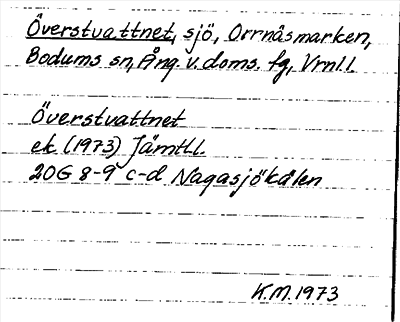 Överstvattnet, sjö, Orrnäsmarken,
Bodums sn, Ång. v. doms. fg, Vrnl.l.
Överstvattnet
ek (1973) Jämtl.l.
20G 8-9 c-d Nagasjökölen
K.M. 1973